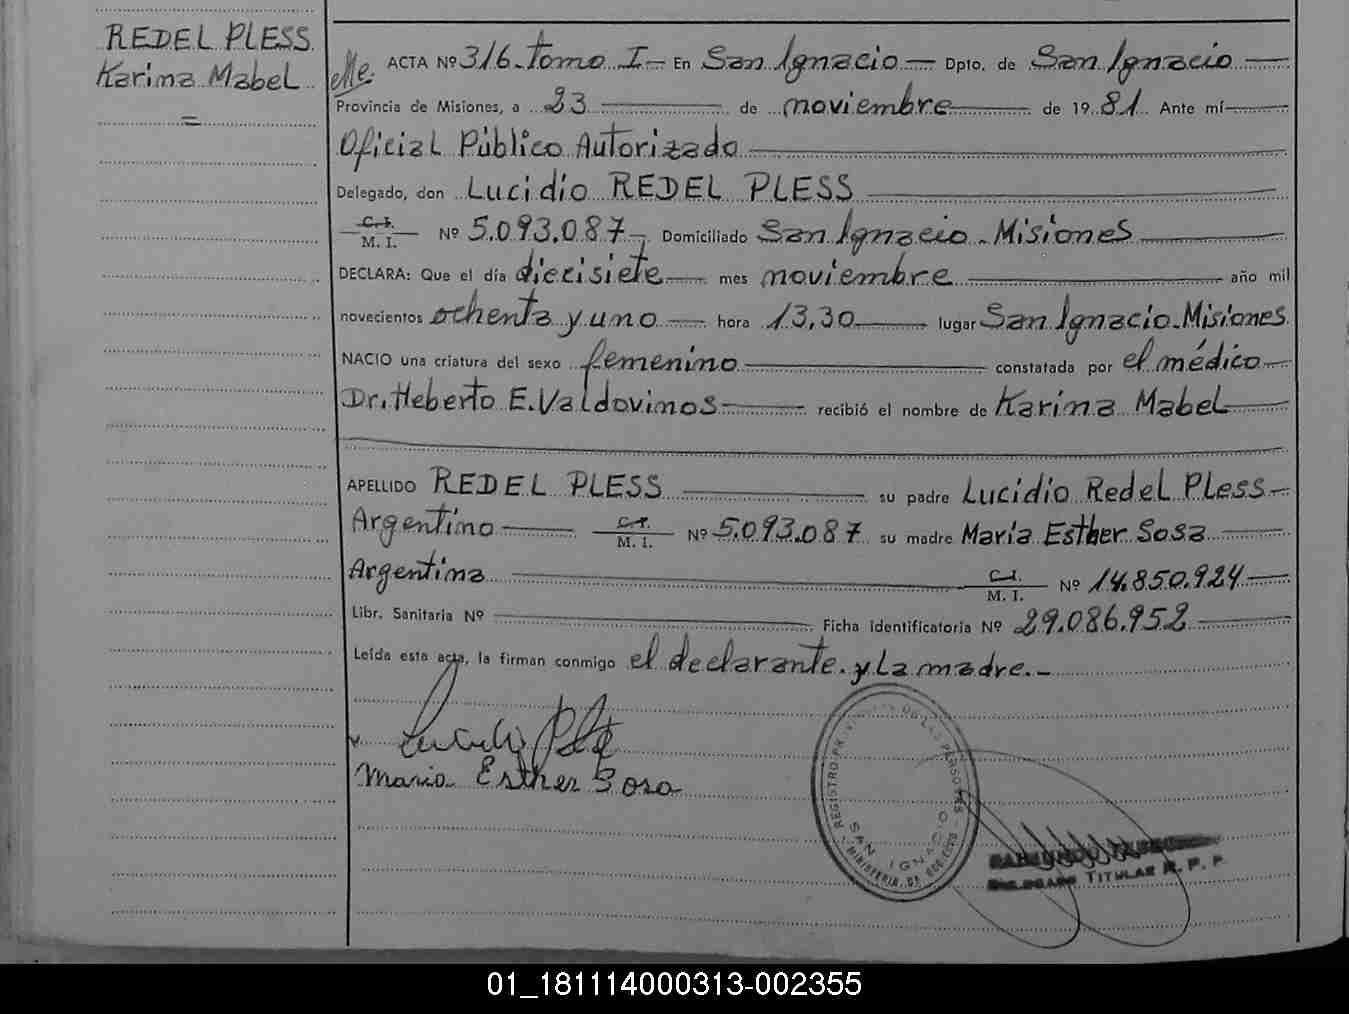 REDEL PLESS
Karina Mabel
=
ACTA Nº 316. Tomo I - En San Ignacio - Dpto. de San Ignacio -
Provincia de Misiones, a 23 de noviembre de 19 81. Ante mí
Oficial Público Autorizado
Delegado, don Lucidio REDEL PLESS
C. I.
M. I. Nº 5.093.087 -, Domiciliado San Ignacio - Misiones
DECLARA: Que el día diecisiete mes noviembre año mil
novecientos ochenta y uno hora 13,30 lugar San Ignacio - Misiones
NACIO una criatura del sexo femenino constatada por el médico
Dr. Heberto E. Valdovinos recibió el nombre de Karina Mabel
APELLIDO REDEL PLESS su padre Lucidio Redel Pless -
Argentino C. I. M. I. Nº 5.093.087 su madre María Esther Sosa
Argentina C. I. M. I. Nº 14.850.924
Libr. Sanitaria Nº Ficha identificatoria Nº 29.086.952
Leída esta acta, la firman conmigo el declarante. y La madre. -
Maria Esther Sosa
REGISTRO PROVINCIAL DE LAS PERSONAS
SAN IGNACIO
MINISTERIO DE GOBIERNO
DELEGADO TITULAR R. P. P.
01_181114000313-002355